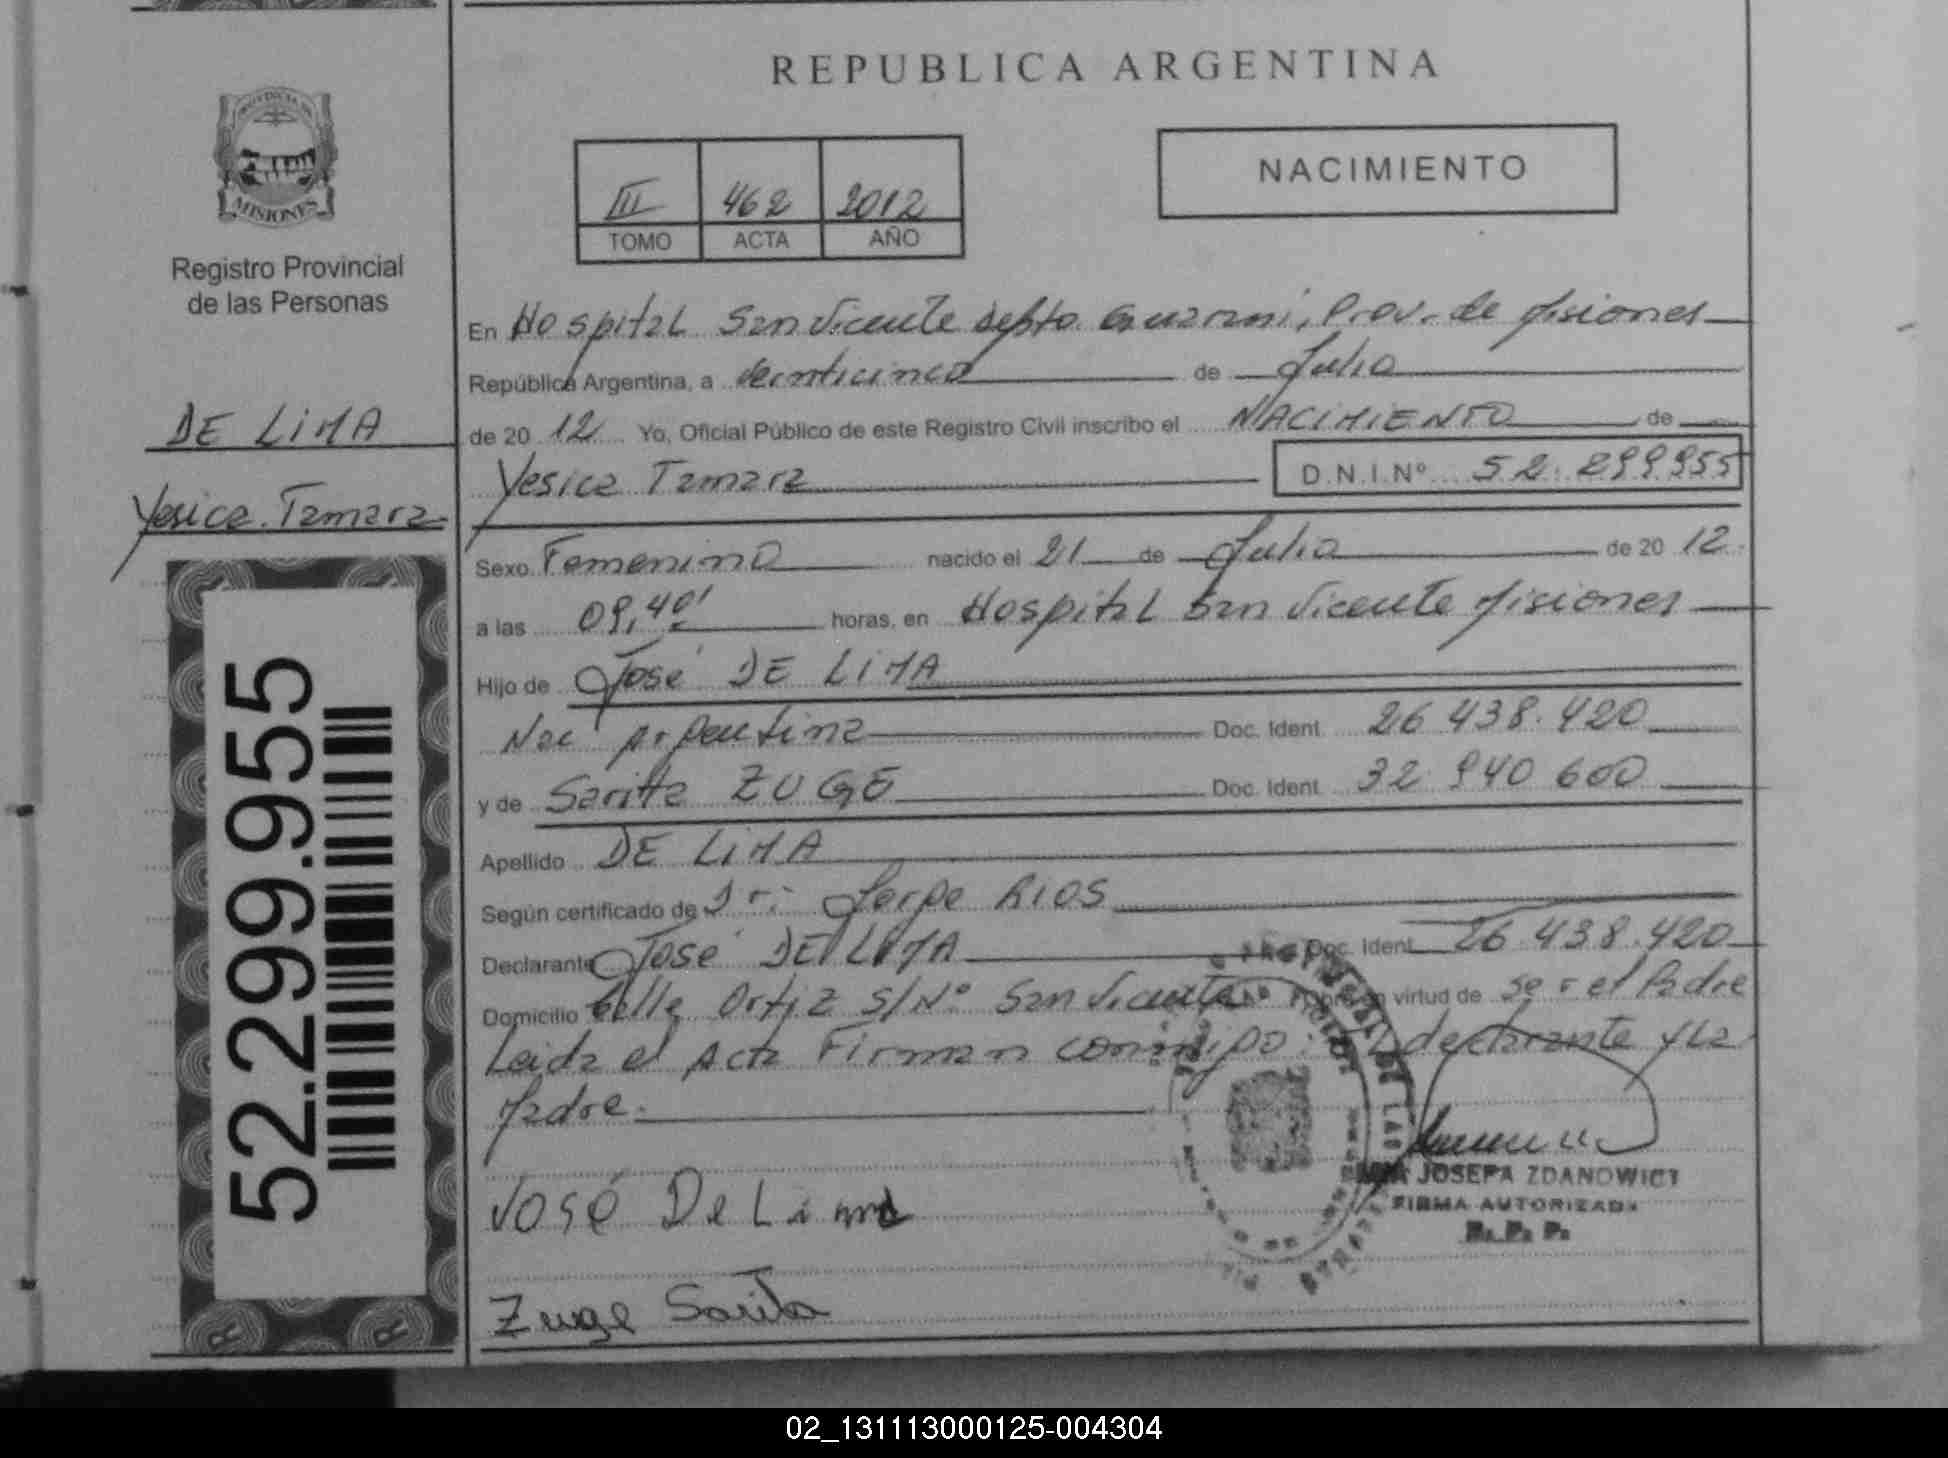 REPUBLICA ARGENTINA
NACIMIENTO
III 462 2012
TOMO ACTA AÑO
PROVINCIA DE
MISIONES
Registro Provincial
de las Personas
DE LIMA
Yesica Tamara
52.299.955
En Hospital San Vicente depto Guarani, Prov. de Misiones
República Argentina, a veinticinco de Julio
de 20 12 Yo, Oficial Público de este Registro Civil inscribo el NACIMIENTO de
Yesica Tamara D.N.I.Nº 52.299955
Sexo Femenino nacido el 21 de Julio de 20 12
a las 09,40' horas, en Hospital San Vicente Misiones
Hijo de José DE LIMA
Nac Argentina Doc. Ident. 26.438.420
y de Saritta ZUGE Doc. Ident. 32.940.600
Apellido DE LIMA
Según certificado de Dr: Jorge RIOS
Declarante José DE LIMA Doc. Ident. 26.438.420
Domicilio Calle Ortiz S/Nº San Vicente virtud de ser el Padre
Leida el Acta Firman conmigo: declarante y La
Madre.
JOSEFA ZDANOWICZ
FIRMA AUTORIZADA
R. P. P.
José De Lima
Zuge Sarita
02_131113000125-004304